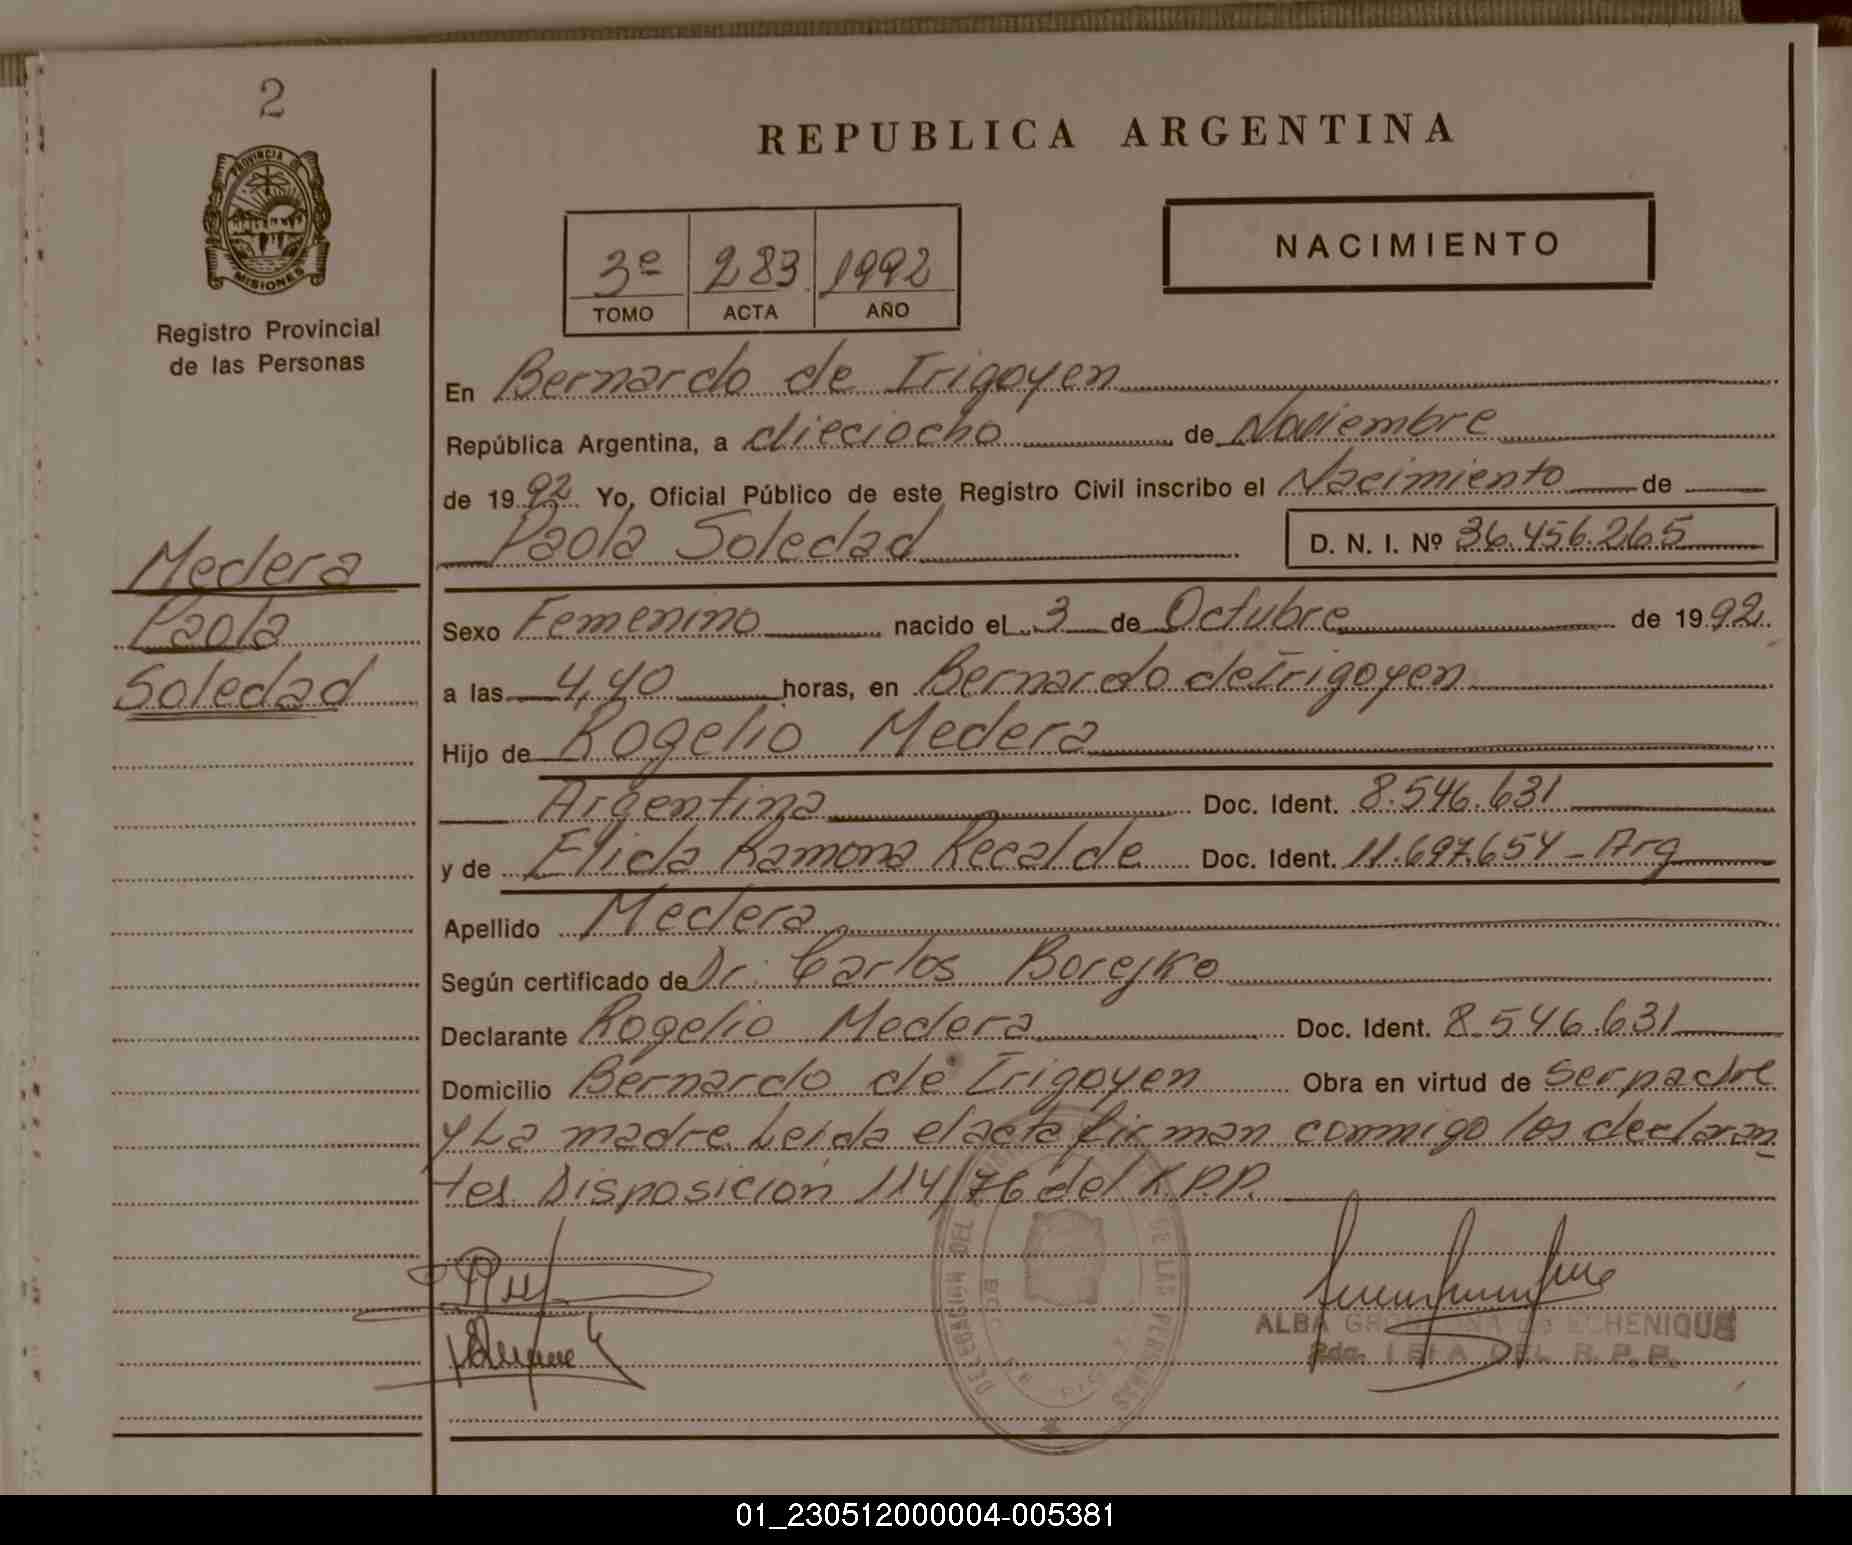 2
PROVINCIA DE
MISIONES
Registro Provincial
de las Personas
REPUBLICA ARGENTINA
NACIMIENTO
3º 283 1992
TOMO ACTA AÑO
En Bernardo de Irigoyen
República Argentina, a dieciocho de Noviembre
de 1992. Yo, Oficial Público de este Registro Civil inscribo el Nacimiento de
Paola Soledad D. N. I. Nº 36.456.265
Medera
Paola
Soledad
Sexo Femenino nacido el 3 de Octubre de 1992.
a las 4,40 horas, en Bernardo de Irigoyen
Hijo de Rogelio Medera
Argentina Doc. Ident. 8.546.631
y de Elida Ramona Recalde Doc. Ident. 11.697.654 - Arg
Apellido Medera
Según certificado de Dr. Carlos Borejko
Declarante Rogelio Medera Doc. Ident. 8.546.631
Domicilio Bernardo de Irigoyen Obra en virtud de ser padre
y La madre. Leida el acta firman conmigo los declaran
tes. Disposición 114/76 del R.P.P.
DELEGACION DEL DE LAS PERSONAS
ALBA de ECHENIQUE
DEL R.P.P.
01_230512000004-005381